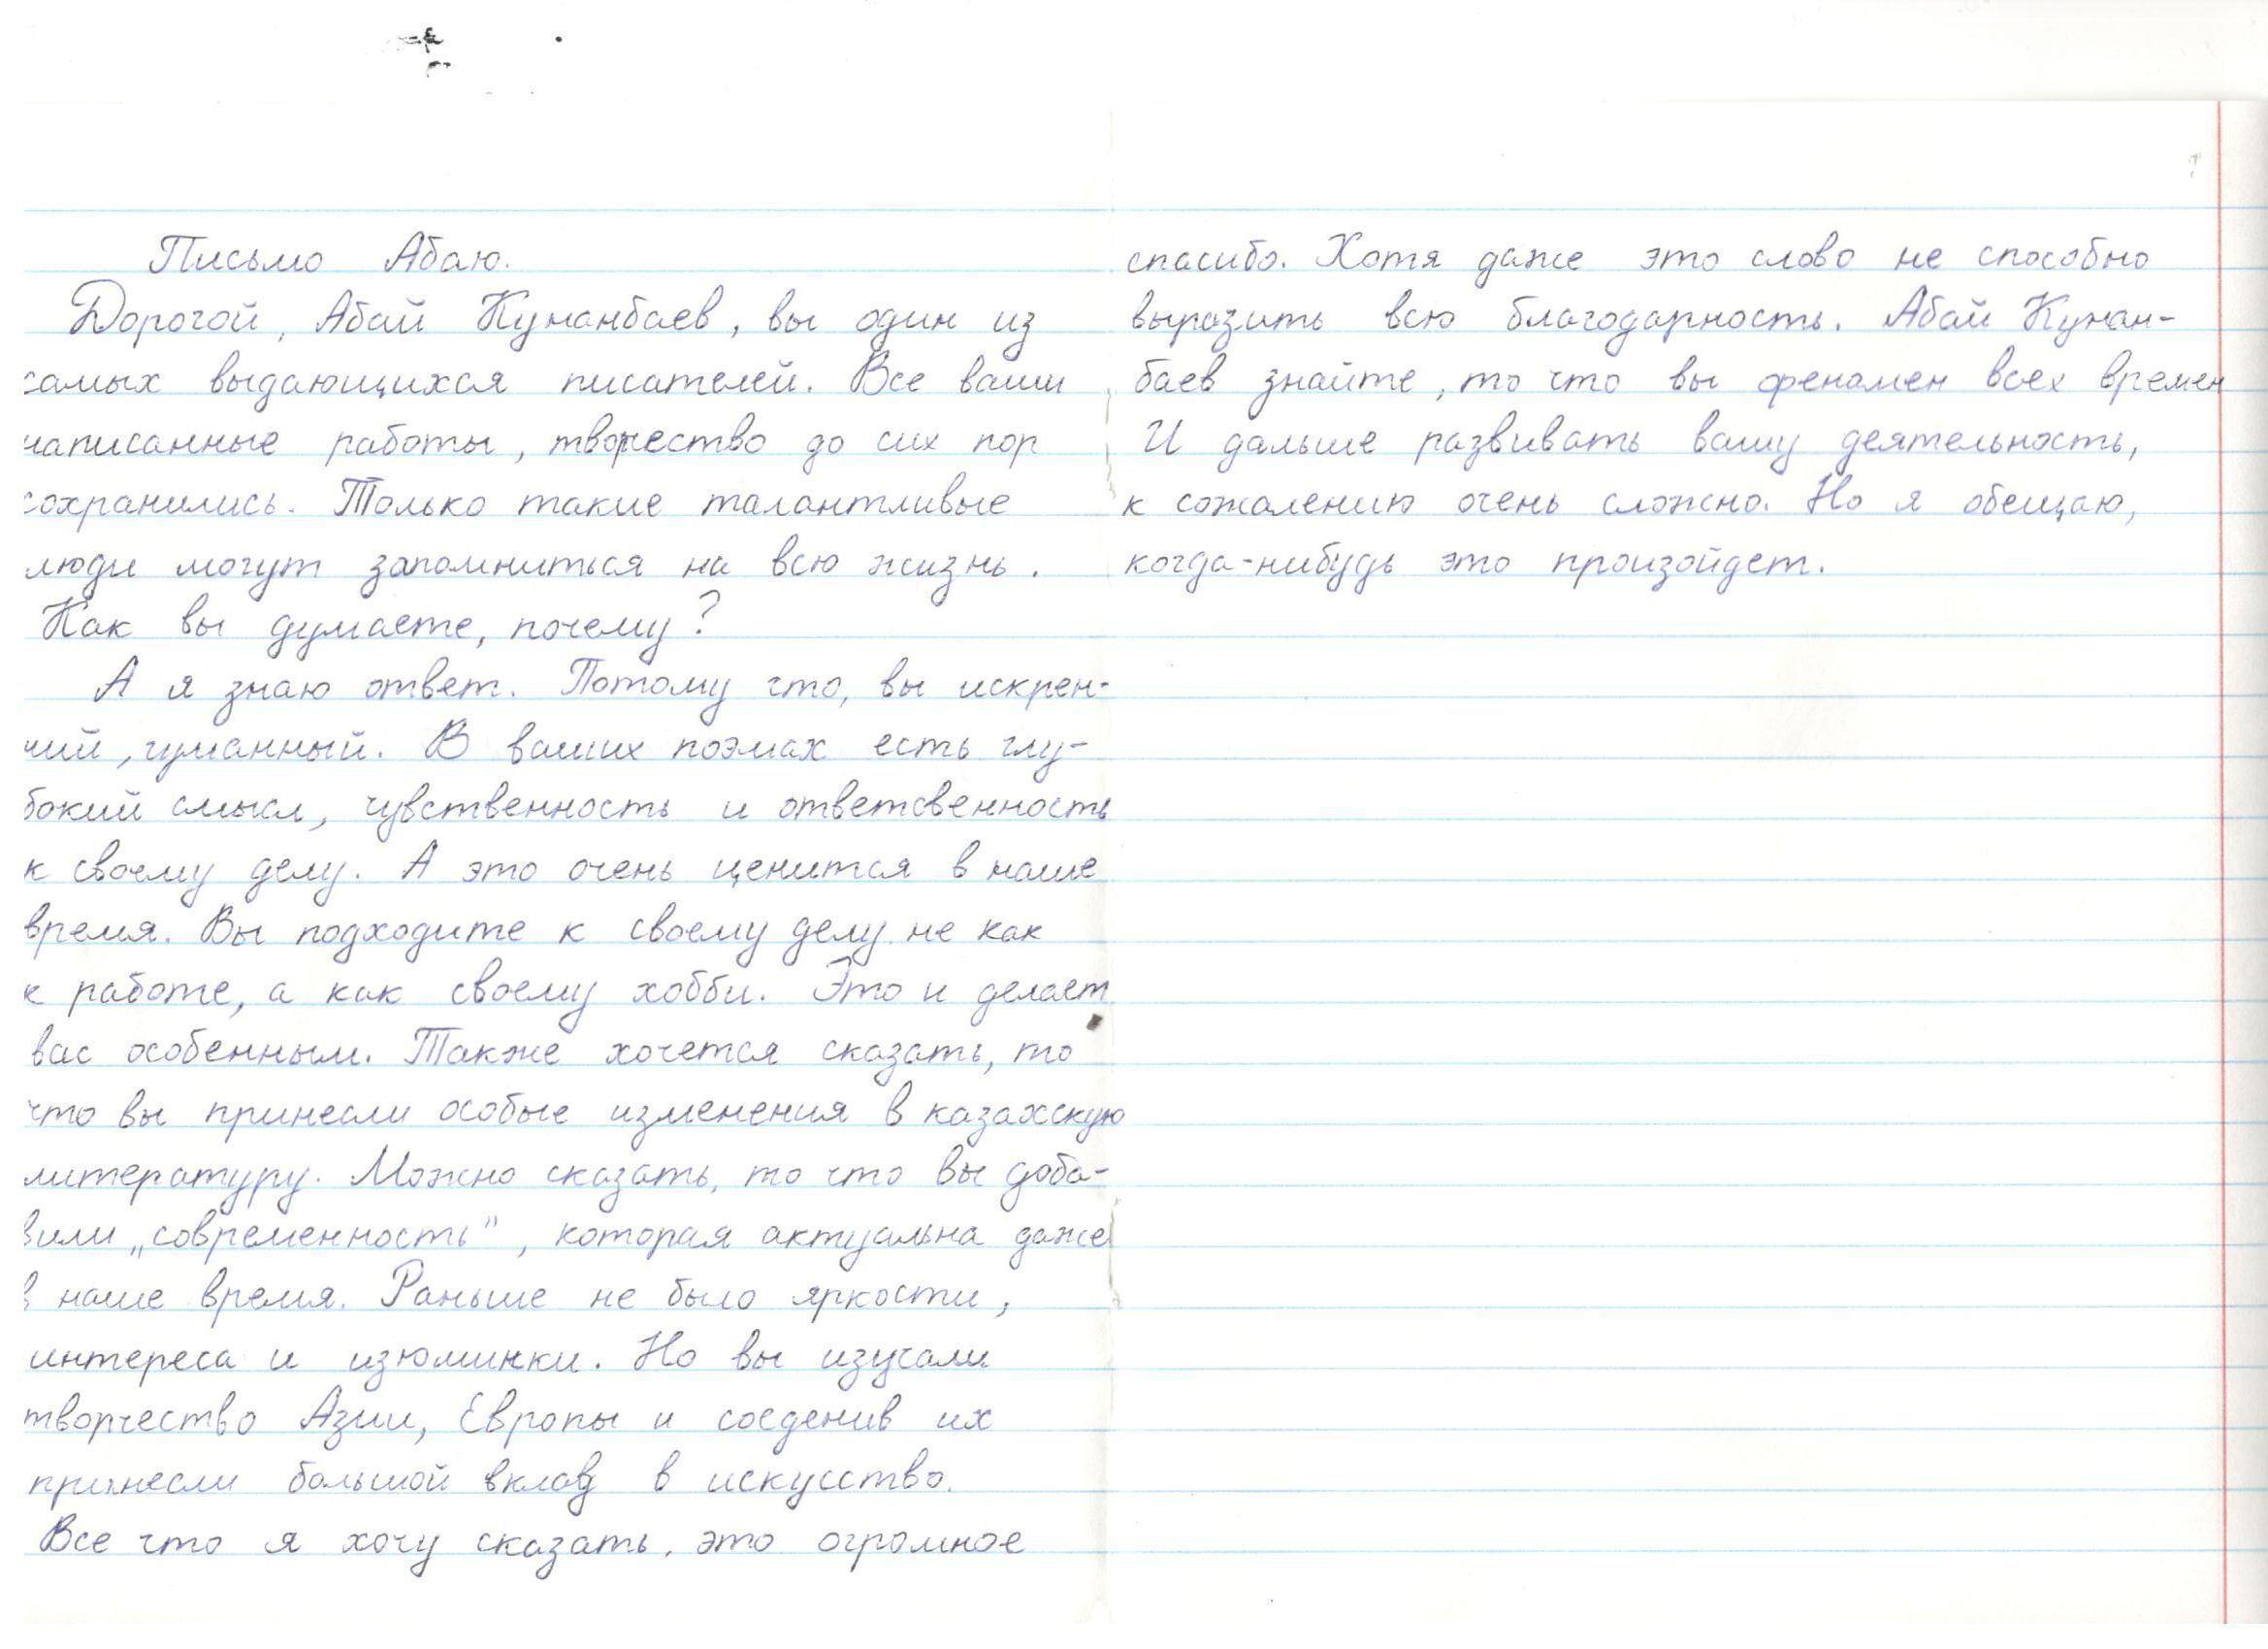 Письмо Абаю.
Дорогой, Абай Кунанбаев, вы один из
самых выдающихся писателей. Все ваши
написанные работы, творчество до сих пор
сохранились. Только такие талантливые
люди могут запомниться на всю жизнь.
Как вы думаете, почему?
А я знаю ответ. Потому что, вы искрен-
ний, гуманный. В ваших поэмах есть глу-
бокий смысл, чувственность и ответсвенность
к своему делу. А это очень ценится в наше
время. Вы подходите к своему делу не как
к работе, а как своему хобби. Это и делает
вас особенным. Также хочется сказать, то
что вы принесли особые изменения в казахскую
литературу. Можно сказать, то что вы доба-
вили „современность", которая актуальна даже
в наше время. Раньше не было яркости,
интереса и изюминки. Но вы изучали
творчество Азии, Европы и соеденив их
принесли большой вклад в искусство.
Все что я хочу сказать, это огромное
спасибо. Хотя даже это слово не способно
выразить всю благодарность. Абай Кунан-
баев знайте, то что вы феномен всех времен
И дальше развивать вашу деятельность,
к сожалению очень сложно. Но я обещаю,
когда-нибудь это произойдет.